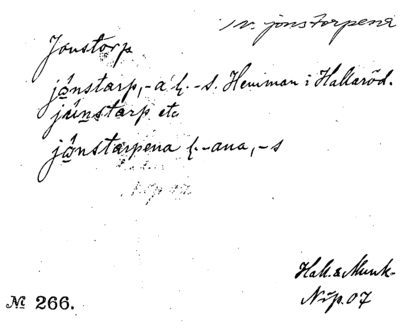 IV. jönstorpena
Jonstorp
jǫnstarp, -a h. -s. Hemman i Hallaröd.
jäunstarp etc
jǫnstarpena h. -ana, -s
Hall. & Munk-
Nip. 07
№ 266.